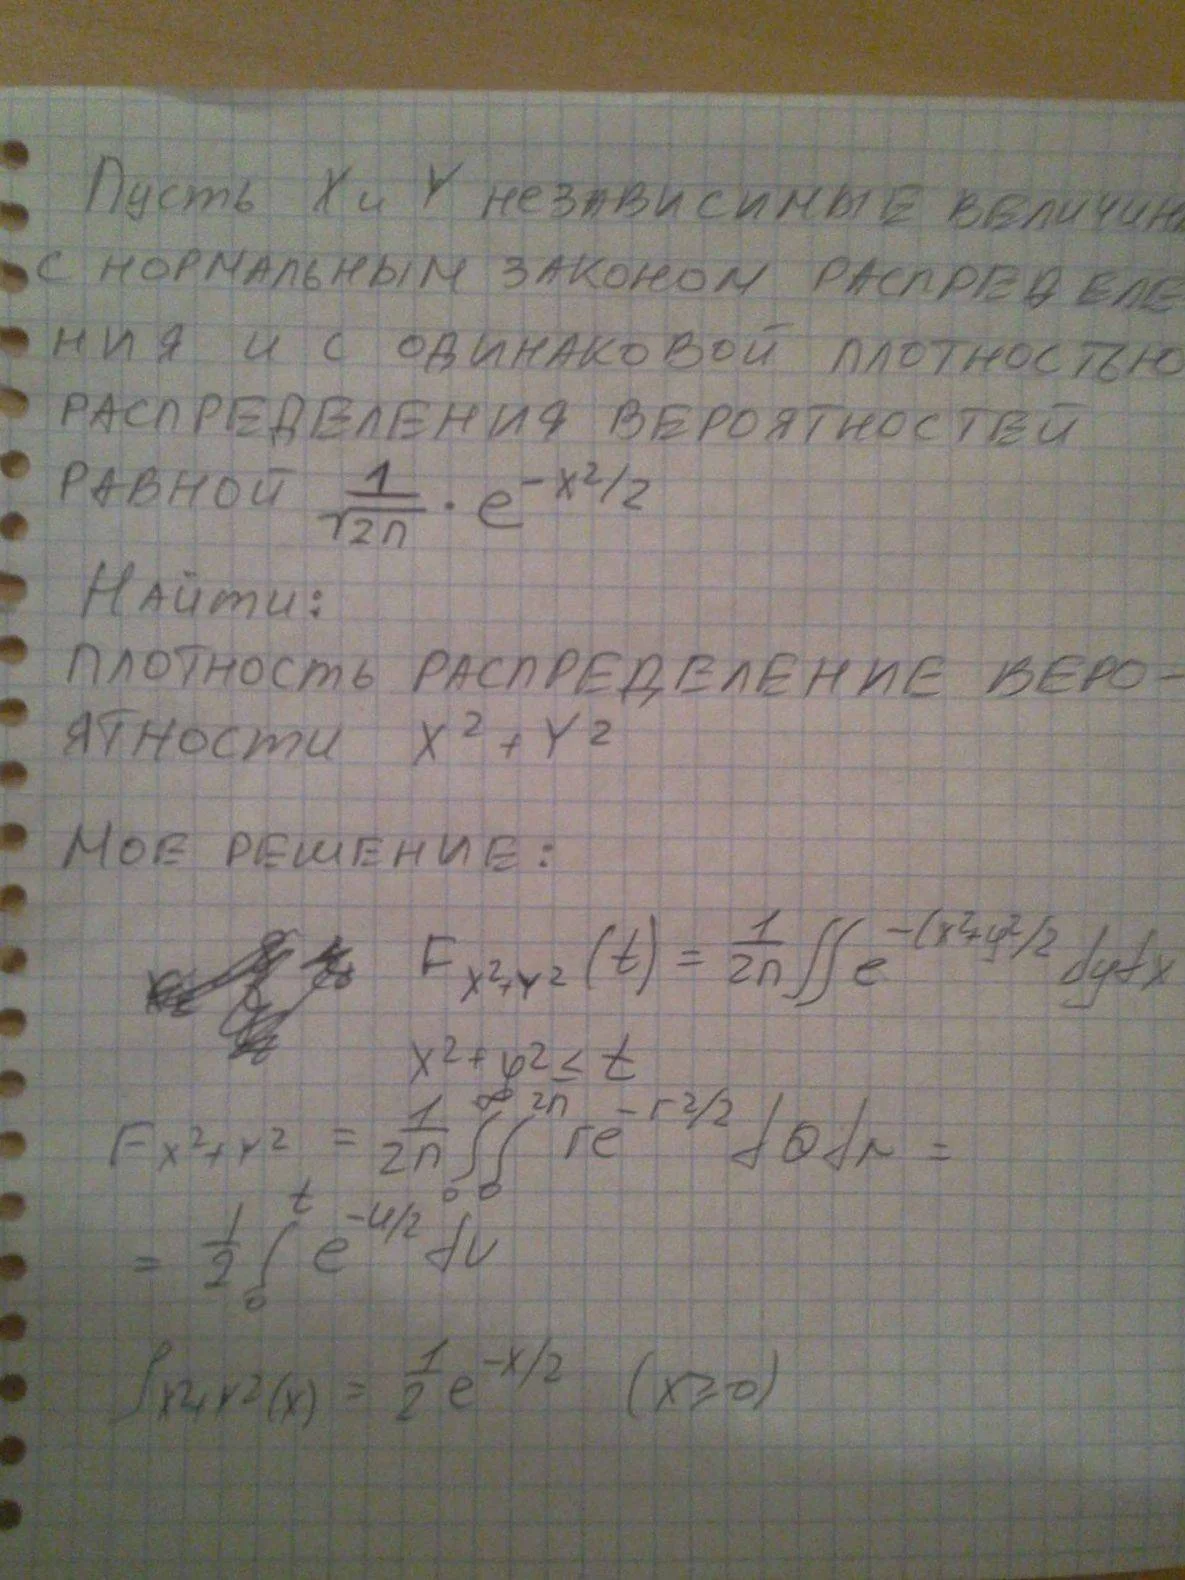 Пусть X и Y независимые величины
с нормальным законом распределе
ния и с одинаковой плотностью
распределения вероятностей
равной 1/√2π · e^-x²/2
Найти:
плотность распределение веро-
ятности X² + Y²
Мое решение:
F X²+Y² (t) = 1/2π ∬ e^-(x²+y²/2 dydx
x²+y² ≤ t
F X²+Y² = 1/2π ∫0^∞ ∫0^2π re^-r²/2 dθdr =
= 1/2 ∫0^t e^-u/2 du
f X²+Y² (x) = 1/2 e^-x/2 (x≥0)